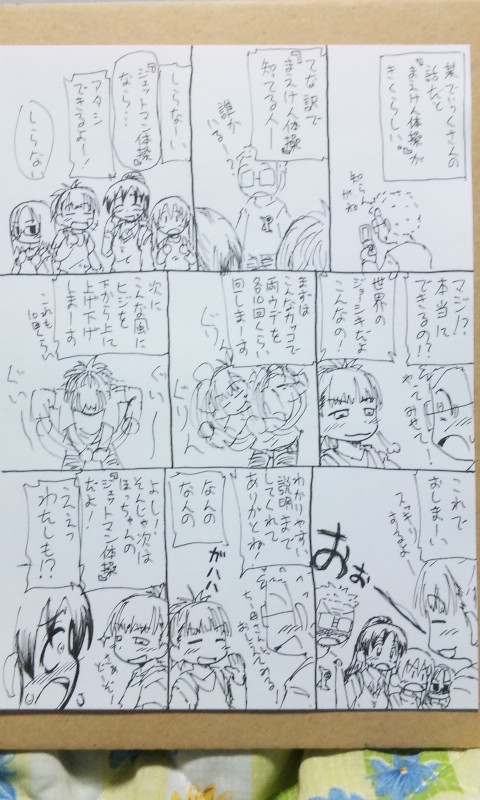 話だと
『まえけん体操』が
きくらしい。
知らん
がね
てな訳で
『まえけん体操』
知ってる人ー
誰か
しらなーい
『ジェットマン体操』
なら…
アタシ
できるよー!
しらない
マジ!?
本当に
できるの!?
やってみせてー!
世界の
ジョーシキだよ
こんなの!
まずは
こんなカッコで
両ウデを
8〜10回くらい
回しまーす
ぐりん
ぐりん
次に
こんな風に
ヒジを
下から上に
上げ下げ
しまーす
これも
10回くらい
ぐい
ぐい
これで
おしまーい
おぉー
わかりやすい
説明まで
してくれて
ありがとね
なんの
なんの
ガハハ
よし!
そんじゃ次は
ほっちゃんの
『ジェットマン体操』
だよ!
ええっ
わたしも!?